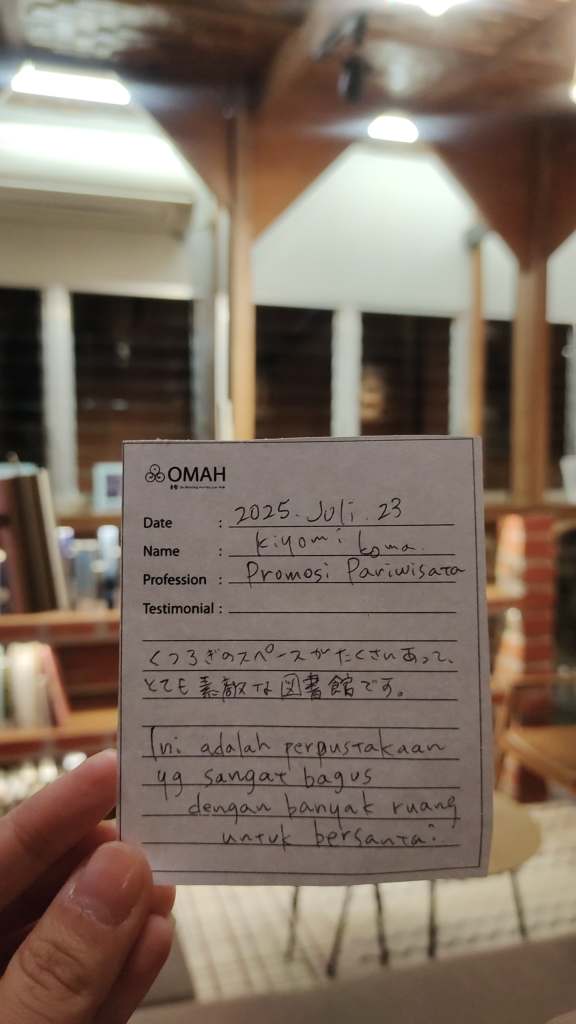 OMAH
Date : 2025. Juli. 23
Name : Kiyomi Koma.
Profession : Promosi Pariwisata
Testimonial :
くつろぎのスペースがたくさんあって、
とても素敵な図書館です。
Ini adalah perpustakaan
yg sangat bagus
dengan banyak ruang
untuk bersantai.